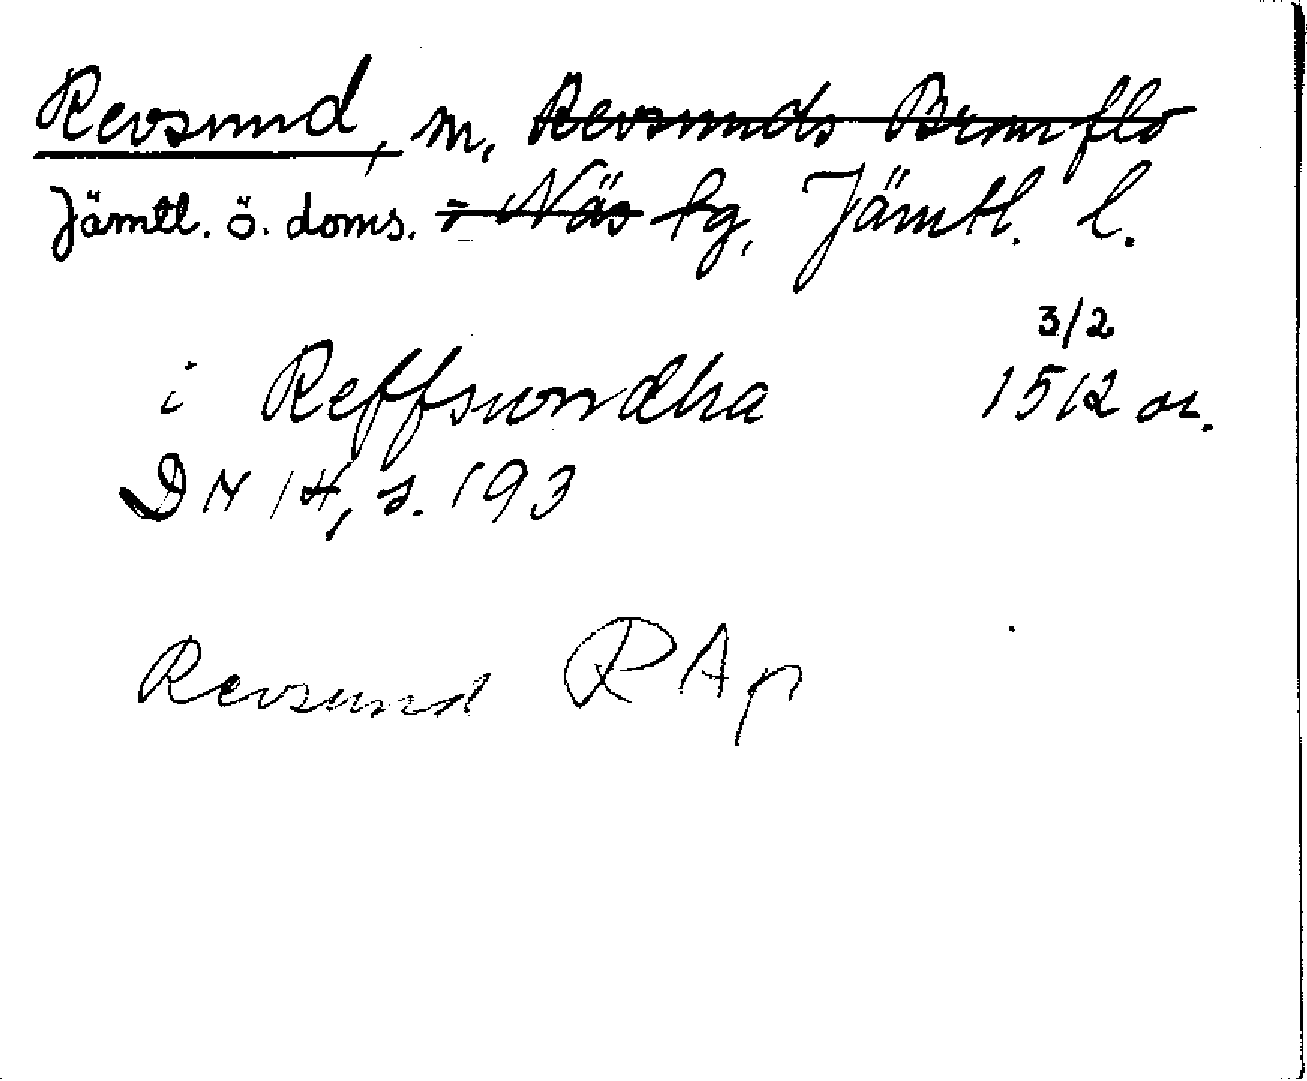 Revsund, sn, Revsunds Brunflo
Jämtl. ö. doms. i Näs tg, Jämtl. l.
3/2
i Reffswndha 1512 or.
DN 14, s. 193
Revsund RAp